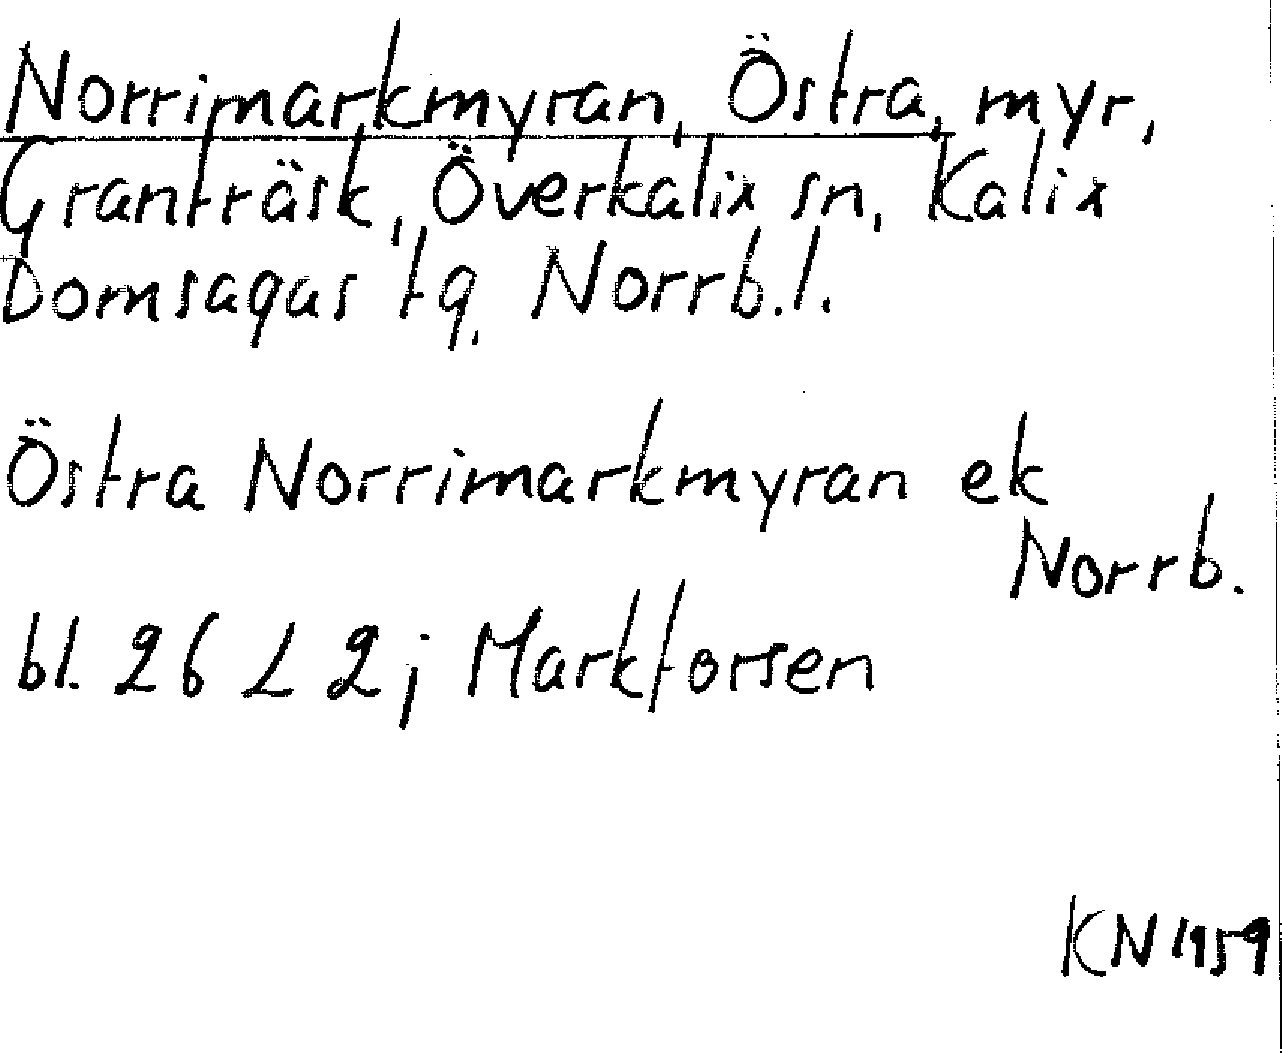 Norrimarkmyran, Östra, myr,
Granträsk, Överkalix sn, Kalix
Domsagas tg, Norrb.l.
Östra Norrimarkmyran ek
Norrb.
bl. 26 L 2; Markforsen
KN 1959